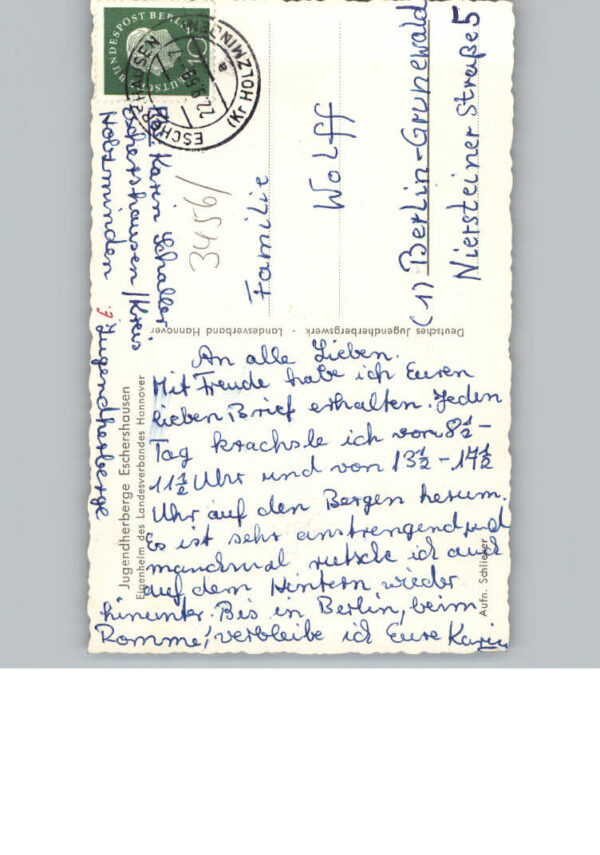 An alle Lieben.
Mit Freude habe ich Euren
lieben Brief erhalten. Jeden
Tag krachsle ich von 8½-
11½ Uhr und von 13½-17½
Uhr auf den Bergen herum.
Es ist sehr anstrengend und
manchmal rutsche ich auch
auf dem Hintern wieder
hinunter. Bis in Berlin, beim
Romme, verbleibe ich Eure Karin
Karin Schaller
Eschershausen/Kreis
Holzminden Jugendherberge
Jugendherberge Eschershausen
Eigenheim des Landesverbandes Hannover
Aufn. Schlieker
Deutsches Jugendherbergswerk · Landesverband Hannover
Familie
Wolff
(1) Berlin-Grunewald
Niersteiner Straße 5
3456/
DEUTSCHE BUNDESPOST BERLIN
10
ESCHERSHAUSEN
(Kr HOLZMINDEN)
22.9.59